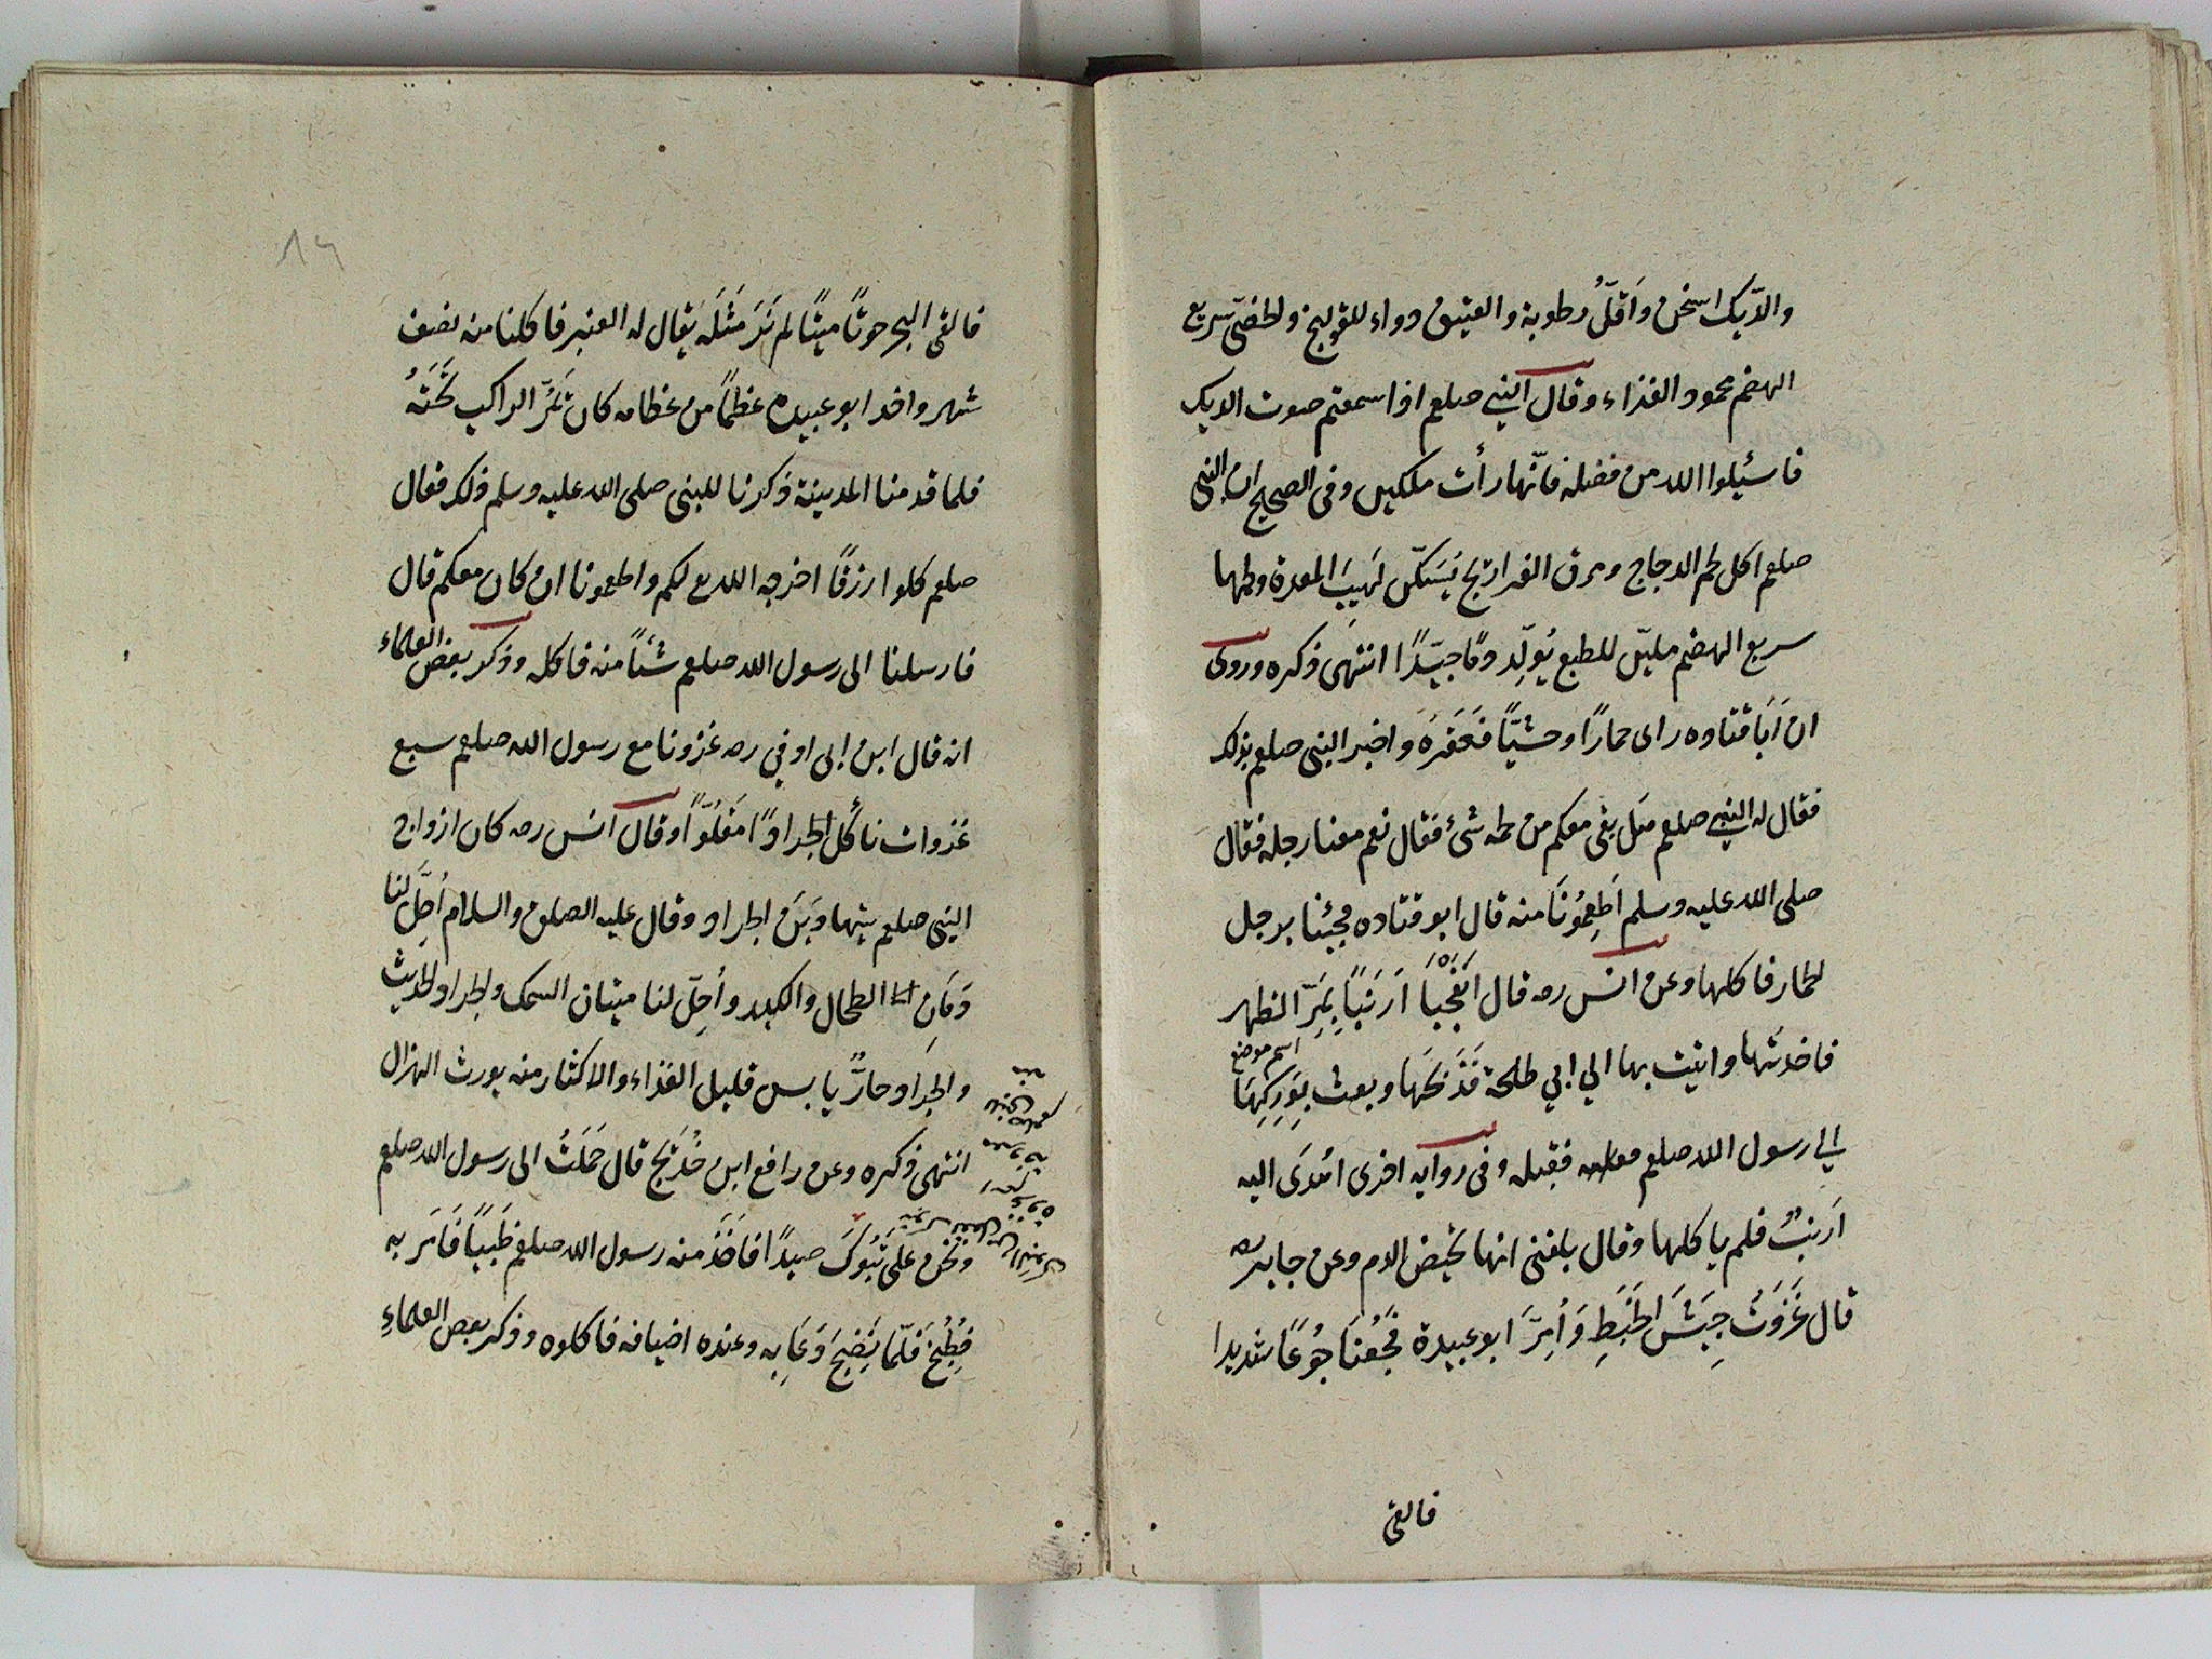 والدّيك اسخن وَاَقلّ رطوبة والعتيق دواء للقولنج ولخصّى سريع
الهضم محمود الغذاء وقال النبي صلعم اذا سمعتم صوت الديك
فاسئلوا الله من فضله فانّها رأت ملكين وفى الصحيح ان النبى
صلعم اكل لحم الدجاج ومرق الفراريج يُسَكّن لَهِيبَ المعدة ولحمها
سريع الهضم مليّن للطبع يُوَلِّد دمًا جيّدًا انتهى ذكره وروى
ان اَبَا قتاده راى حمارًا وحشيًّا فَعَقَرَهُ واخبر النبى صلعم بذلك
فقال له النبي صلعم هَل بقى معكم من لحمه شئ فقال نعم معنا رجله فقال
صلى الله عليه وسلم اَطعِمُونَا منه قال ابو قتاده فجئنا برجل
لحمار فاكلها وعن انس رصه قال اَنفَجْنَا اَرنَبًا بِمَرِّ الظهر
اسم موضع
فاخذتها واتيت بها الي ابي طلحة فَذَبَحَهَا وبعث بِوَرِكِهَا
الي رسول الله صلعم معلهه فقبله وفى روايه اخرى اهدَى اليه
اَرنبٌ فلم ياكلها وقال بلغنى انها تحيض الدم وعن جابر رصه
قال غَزَوتُ جِيَشَ الخَبَطِ وَاُمِّرَ ابو عبيدة فجُعنَا جُوعًا شديدا
فالقى
١٩
فالقى البحر حوتًا ميتًا لم نَرَ مَثلَه يقال له العنبر فاكلنا منه نصف
شهر واخذ ابو عبيده عظمًا من عظامه كان يَمُرّ الراكب تَحتَهُ
فلما قدمنا المدينة ذكرنا للبنى صلى الله عليه وسلم ذلك فقال
صلعم كلوا رزقًا اخرجه الله لكم واطعمونا ان كان معكم قال
فارسلنا الى رسول الله صلعم شئًا منه فاكله وذكر بعض العلماء
انه قال ابن ابى اوفي رصه غزونا مع رسول الله صلعم سبع
غزوات نأكُل الجرادًا مَقلُوًّا وقال انس رصه كان ازواج
النبى صلعم يتهادَيَنَ الجراد وقال عليه الصلوة والسلام اُحِلَّ لنا
دَمَانِ الطحال والكبد واُحِلّ لنا ميتان السمك ولجراد لحديث
والجراد حارٌّ يابس قليل الغذاء والاكثار منه يورث الهزال
انتهى ذكره وعن رافع ابن خُدَيَج قال حَمَلَتُ الى رسول الله صلعم
ونحن على تَبُوكَ صيدًا فاَخَذَ منه رسول الله صلعم ظَبيًا فَامَر به
فَطُبُخ فَلّمَا نَضِجَ دَعَا بِه وعنده اضيافه فاكلوه وذكر بعض العلماءِ